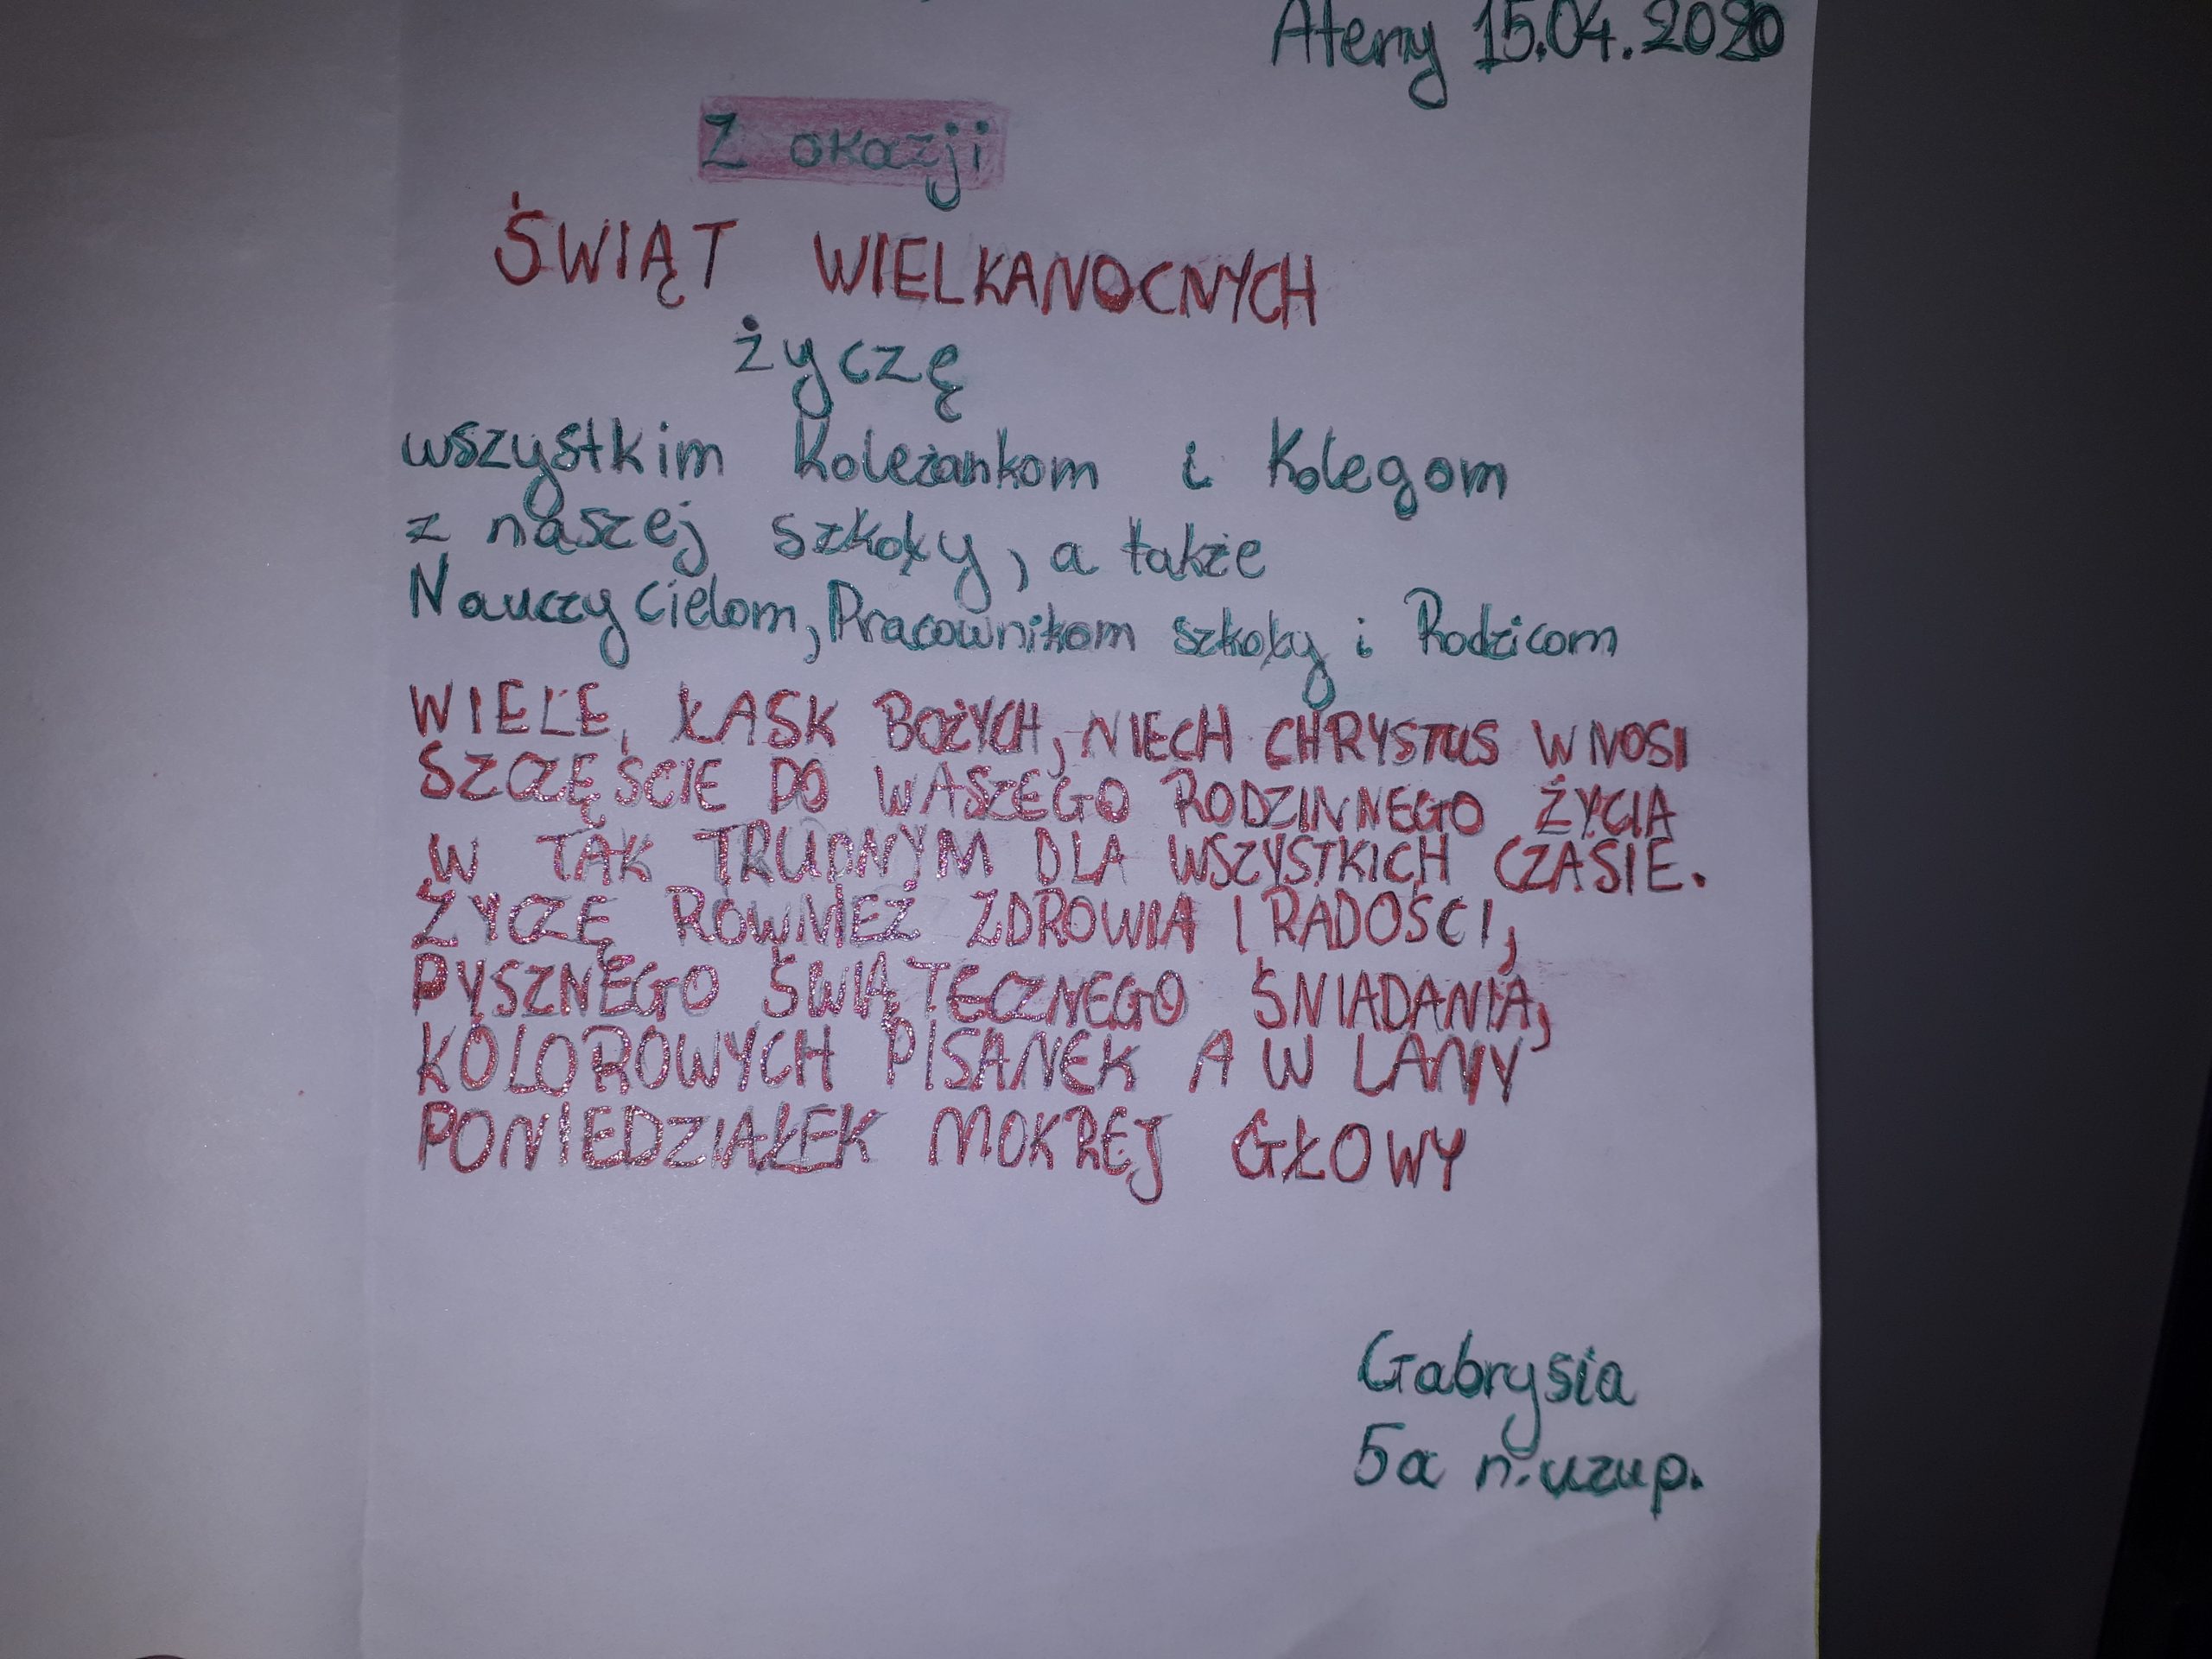 Ateny 15.04.2020
Z okazji
ŚWIĄT WIELKANOCNYCH
życzę
wszystkim Koleżankom i Kolegom
z naszej szkoły, a także
Nauczycielom, Pracownikom szkoły i Rodzicom
WIELE, ŁASK BOŻYCH, NIECH CHRYSTUS WNOSI
SZCZĘŚCIE DO WASZEGO RODZINNEGO ŻYCIA
W TAK TRUDNYM DLA WSZYSTKICH CZASIE.
ŻYCZĘ RÓWNIEŻ ZDROWIA I RADOŚCI,
PYSZNEGO ŚWIĄTECZNEGO ŚNIADANIA,
KOLOROWYCH PISANEK A W LANY
PONIEDZIAŁEK MOKREJ GŁOWY
Gabrysia
5a n.uzup.